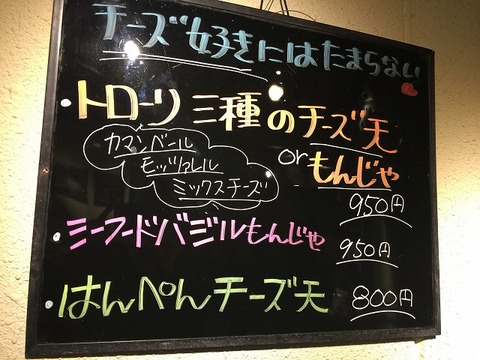 チーズ好きにはたまらない
・トローリ三種のチーズ天
カマンベール
モッツァレル
ミックスチーズ
orもんじゃ
950円
・シーフードバジルもんじゃ
950円
・はんぺんチーズ天 800円